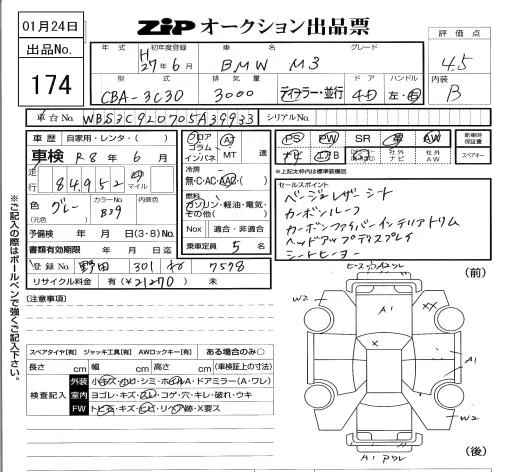 01月24日
ZIP オークション出品票
出品No.
174
評価点
4.5
内装
B
年式
初年度登録
車名
グレード
H
27年6月
BMW M3
型式
排気量
ドア
ハンドル
CBA-3C30
3000
ディーラー・並行
4D
左・右
車台No.
WBS3C920705A39933
シリアルNo.
車歴
自家用・レンタ・( )
車検
R8年6月
走行
84,952
マイル
色
グレー
(元色)
カラーNo.
B39
内装色
予備検 年 月 日(3・8)No.
書類有効期限 年 月 日迄
登録No.
野田 301 7578
リサイクル料金 有(¥21270) 未
フロア
コラム
インパネ
A
MT
速
冷房
無・C・AC・AAC・( )
燃料
ガソリン・軽油・電気・
その他( )
Nox
適合・非適合
乗車定員 5 名
PS
PW
SR
革
AW
ナビ
エアB
社外
ナビ
社外
AW
新車時
保証書
スペアキー
※上記太枠内は標準装備
セールスポイント
ベージュレザーシート
カーボンルーフ
カーボンファイバーインテリアトリム
ヘッドアップディスプレイ
シートヒーター
[注意事項]
スペアタイヤ[有] ジャッキ工具[有] AWロックキー[有]
ある場合のみ○
長さ cm 幅 cm 高さ cm (車検証上の寸法)
検査記入
外装
小キズ・凹・シミ・ホイルA・ドアミラー(A・ワレ)
室内
ヨゴレ・キズ・スレ・コゲ・穴・キレ・破れ・ウキ
FW
トビ石・キズ・ヒビ・リペア跡・X要ス
※ご記入の際はボールペンで強くご記入下さい。
(前)
A2ワレ
W2
A1
XX
X
A1
W2
A1ワレ
(後)